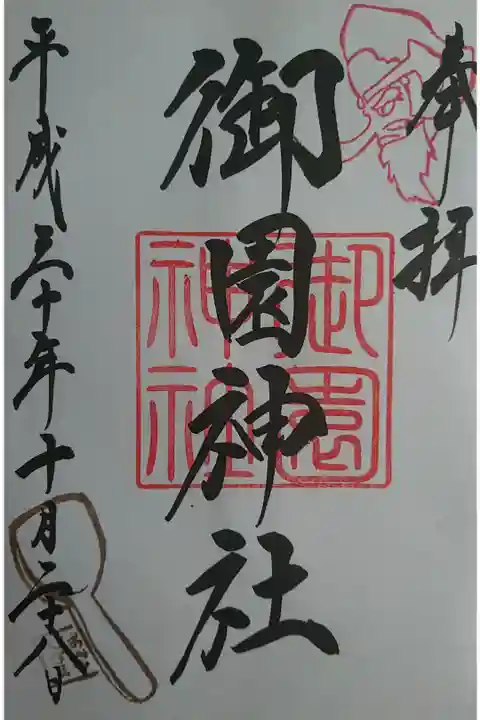 奉拝
御園神社
御園神社
平成三十年十月二十八日